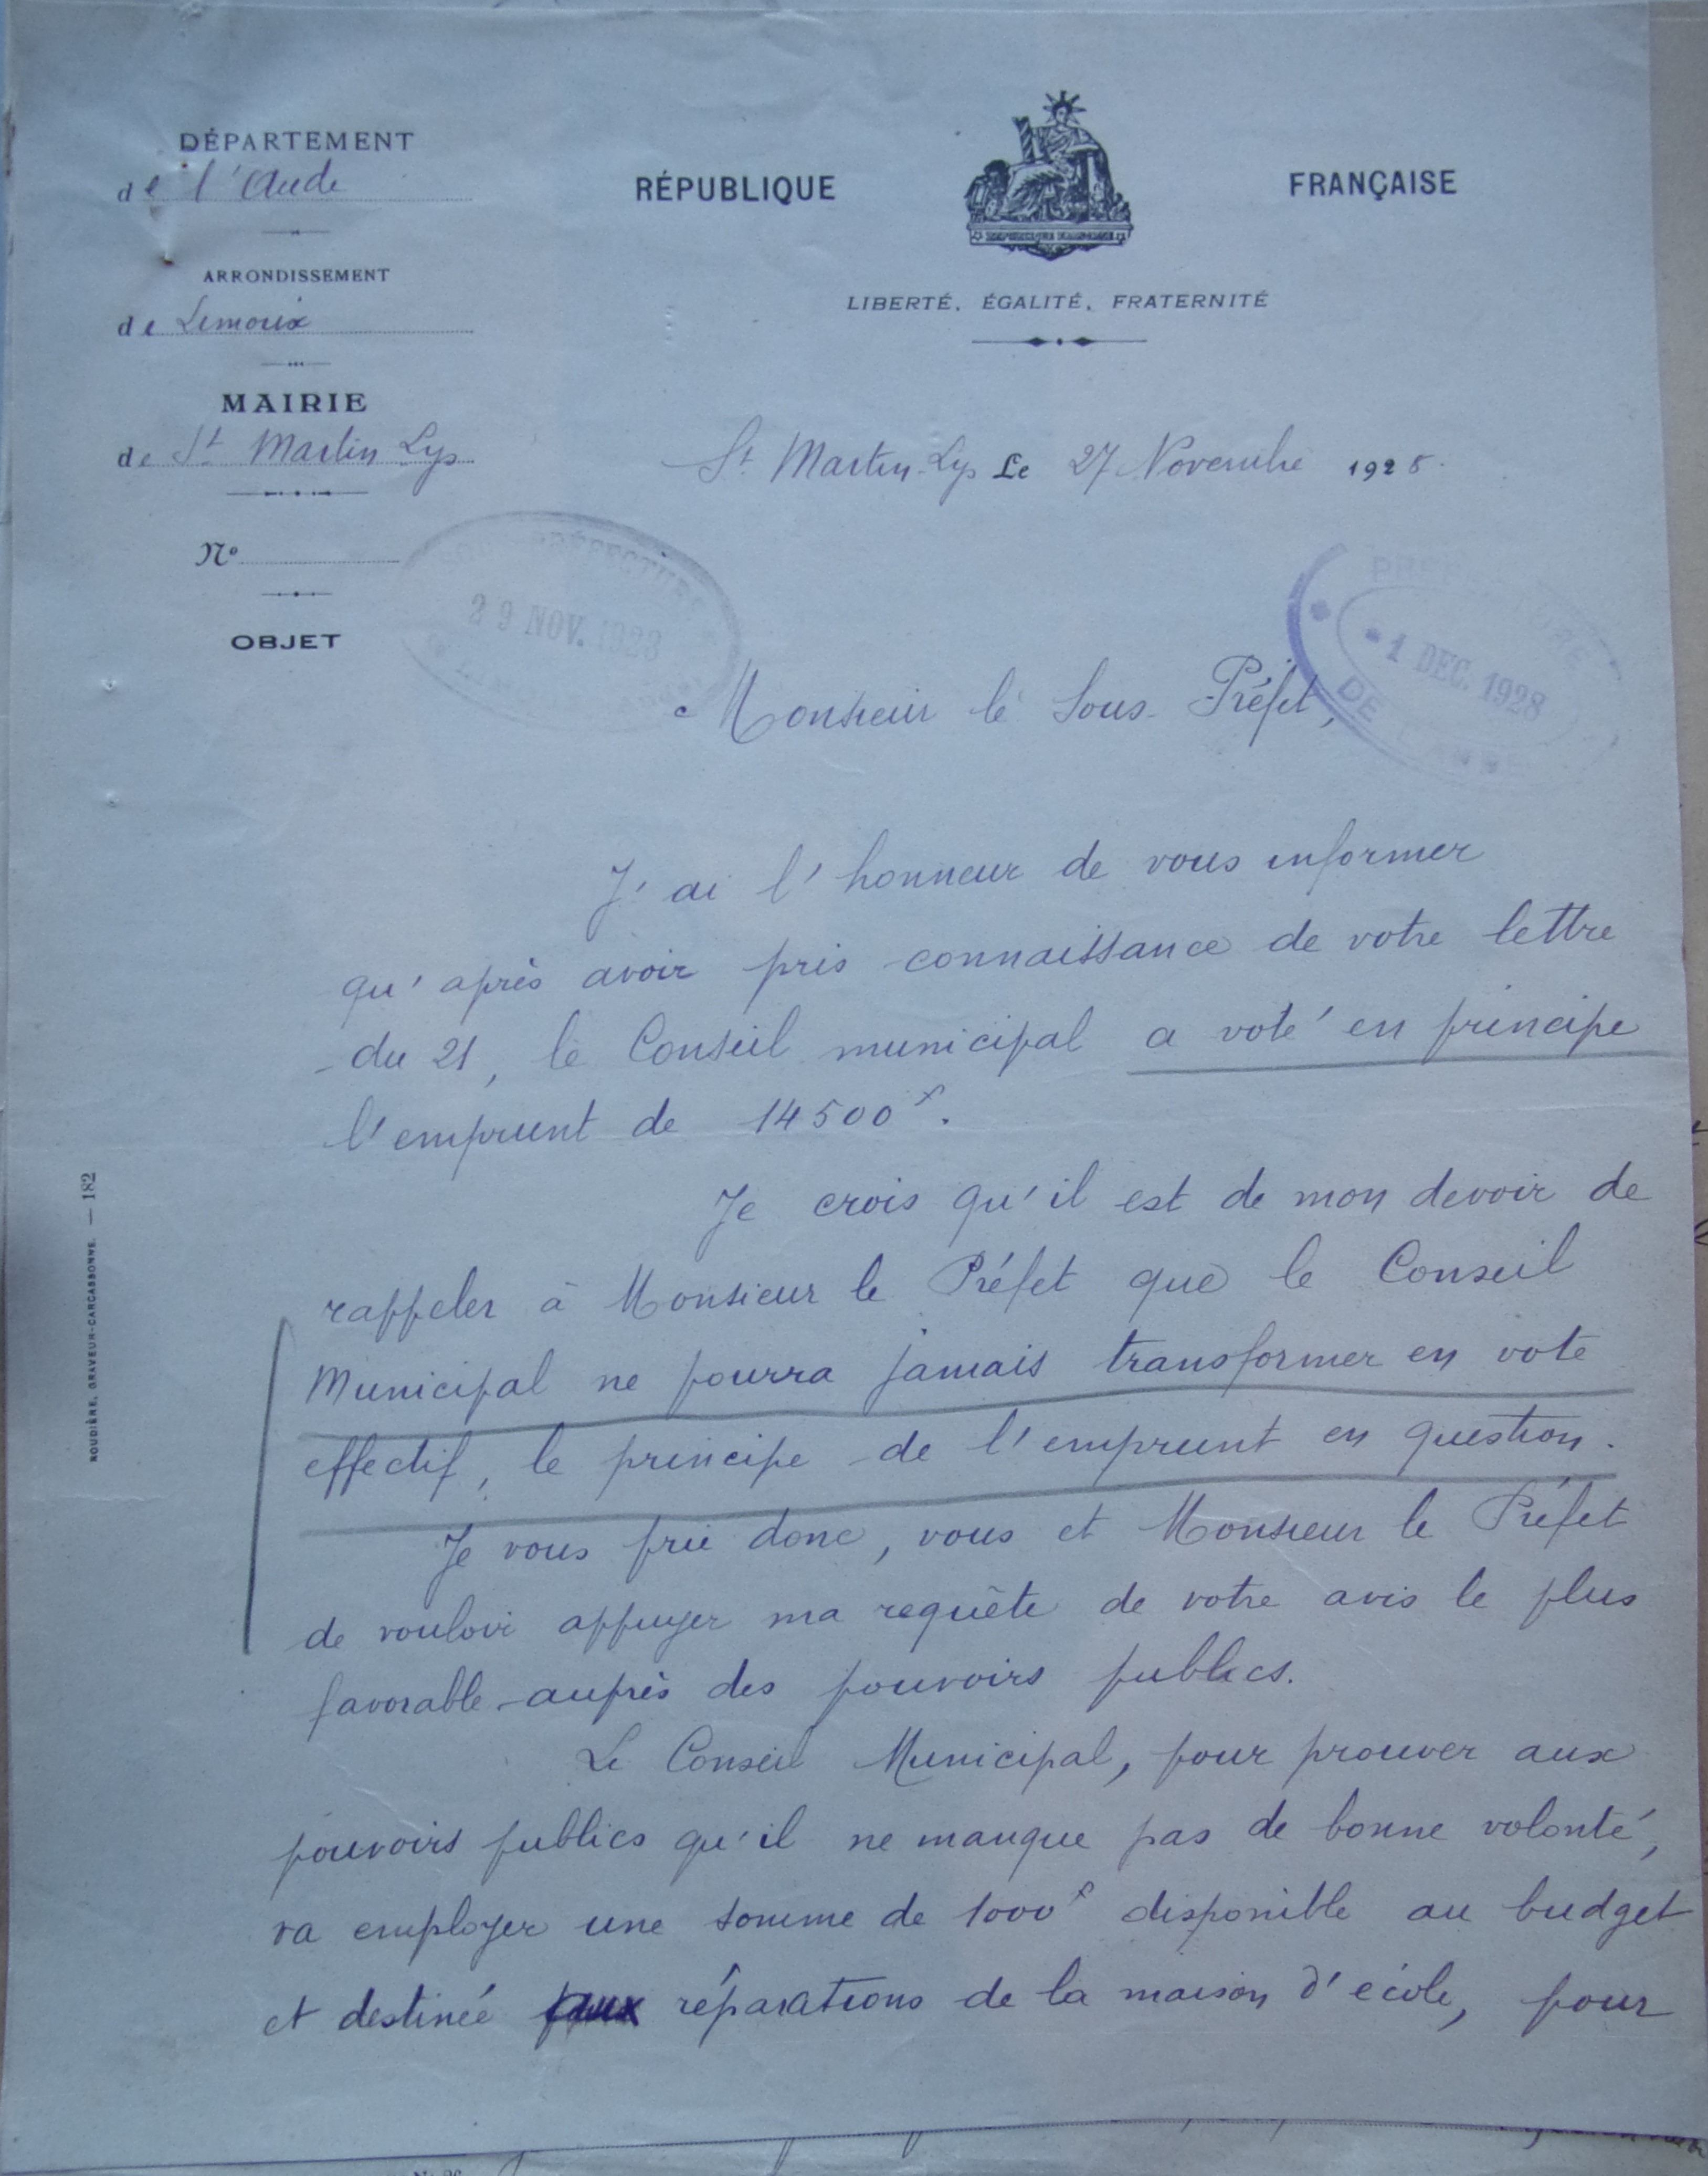 DÉPARTEMENT
de l'Aude
ARRONDISSEMENT
de Limoux
MAIRIE
de St Martin Lys
No
OBJET
RÉPUBLIQUE FRANÇAISE
LIBERTÉ, ÉGALITÉ, FRATERNITÉ
St Martin-Lys Le 27 Novembre 1928.
SOUS-PRÉFECTURE
29 NOV. 1928
LIMOUX
PRÉFECTURE
1 DEC. 1928
DE L'AUDE
Monsieur le Sous-Préfet,
J'ai l'honneur de vous informer
qu'après avoir pris connaissance de votre lettre
du 21, le Conseil municipal a voté en principe
l'emprunt de 14500f.
Je crois qu'il est de mon devoir de
rappeler à Monsieur le Préfet que le Conseil
Municipal ne pourra jamais transformer en vote
effectif, le principe de l'emprunt en question.
Je vous prie donc, vous et Monsieur le Préfet
de vouloir appuyer ma requête de votre avis le plus
favorable auprès des pouvoirs publics.
Le Conseil Municipal, pour prouver aux
pouvoirs publics qu'il ne manque pas de bonne volonté,
va employer une somme de 1000f disponible au budget
et destinée aux réparations de la maison d'école, pour
ROUDIÈRE, GRAVEUR-CARCASSONNE. — 182